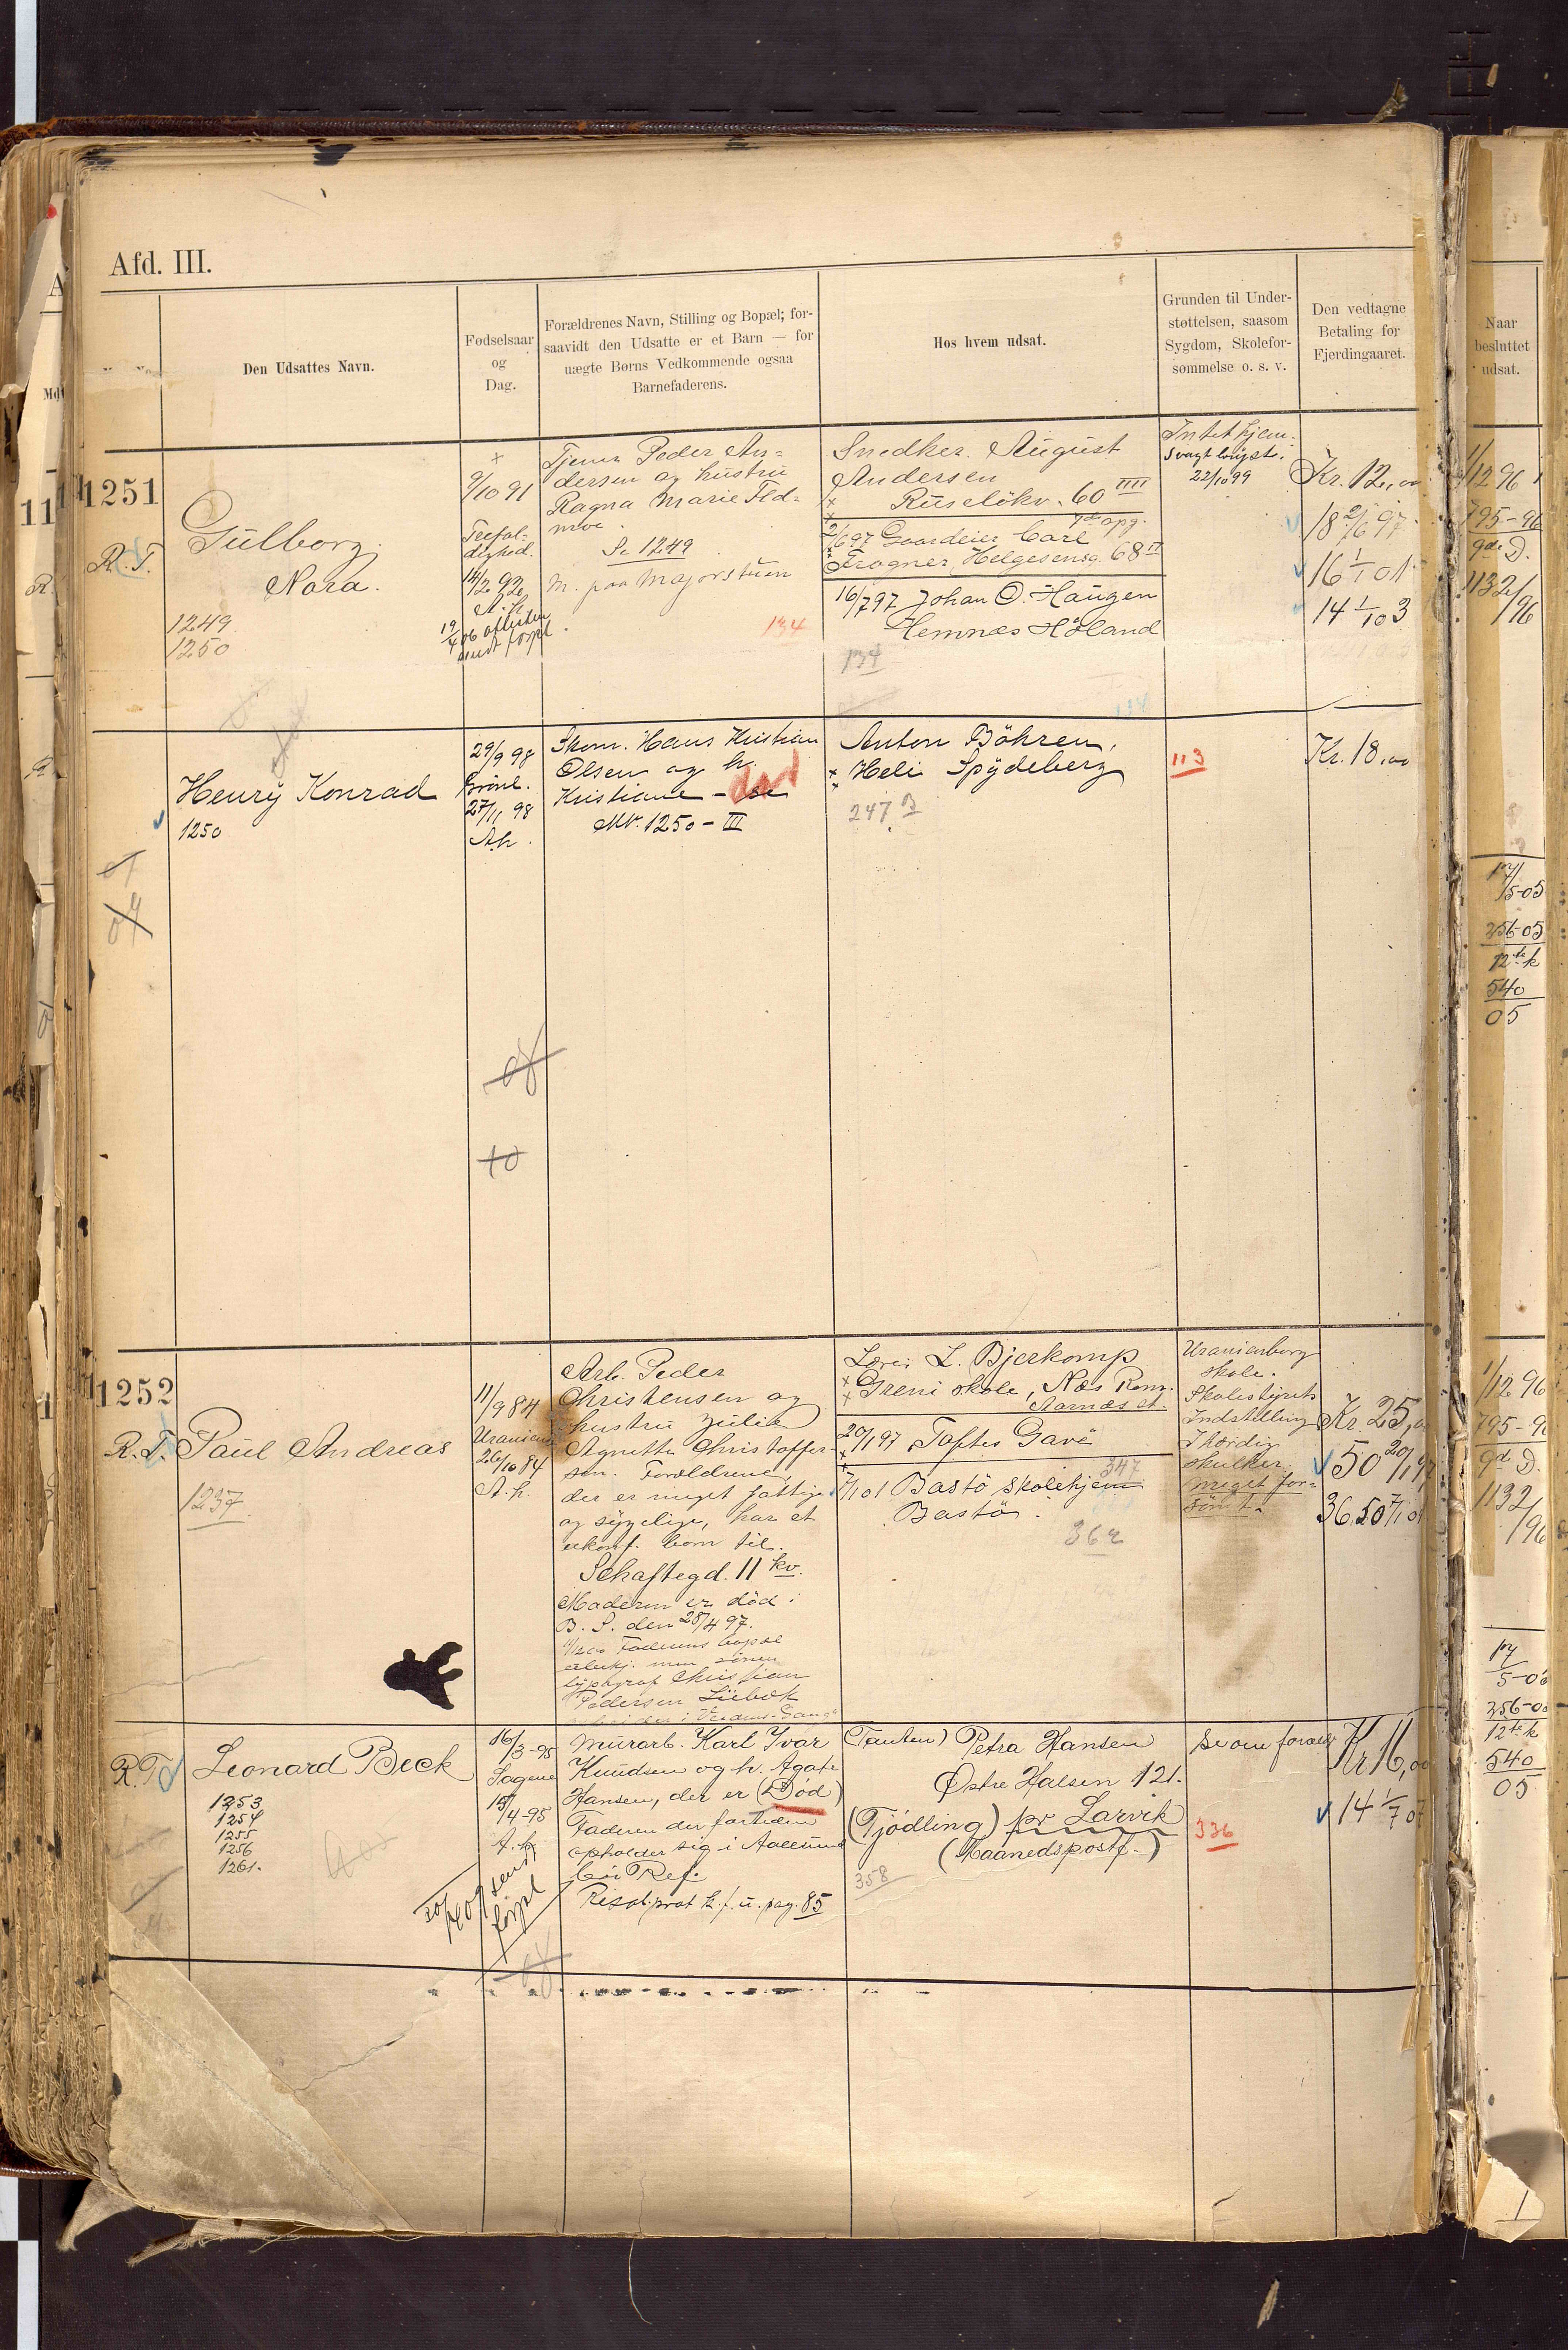 Afd. III.
Den Udsattes Navn.
Fødselsaar
og
Dag.
Forældrenes Navn, Stilling og Bopæl; for-
saavidt den Udsatte er et Barn — for
uægte Børns Vedkommende ogsaa
Barnefaderens.
Hos hvem udsat.
Grunden til Under-
støttelsen, saasom
Sygdom, Skolefor-
sømmelse o. s. v.
Den vedtagne
Betaling for
Fjerdingaaret.
Naar
besluttet
udsat.
1251
R. T.
Gulborg
Nora.
1249
1250
9/10 91
Trefol-
dighed.
14/2 92
A. k.
19/4 06
Tjener Peder An-
dersen og hustru
Ragna Marie
Se 1249
M. paa Majorstuen
134
Snedker August
Andersen
Ruselökv. 60 IIII
7de opg.
2/6 97 Gaardeier Carl
Frogner, Helgesensg. 68 II
16/7 97 Johan O. Haugen
Hemnæs Höland
134
Intet hjem.
22/10 99
Kr. 12,00
18 2/6 97
16 1/1 01
14 1/10 3
1/12 96
795-96
gde D.
1132/96
Henry Konrad
1250
29/9 98
Grönl.
27/11 98
A.k.
Skom. Hans Kristian
Olsen og h.
Kristiane - se
Nr. 1250 - III
Anton Böhren,
Heli Spydeberg
247 B
113
Kr. 18,00
17/5-05
256-05
12te k
540
05
1252
R. T.
Paul Andreas
1237
11/9 84
26/10 84
A. k.
Arb. Peder
Christensen og
hustru Julie
Agnette Christoffer-
sen. Forældrene,
der er meget fattige
og sygelige, har et
ukonf. barn til.
Schaftegd. 11 kv.
Moderen er död i
B. S. den 28/4 97.
Faderens bopæl
ubekj. men sönnen
typograf Christian
Pedersen Lübeck
Lærer L. Bjerkomp
Greni skole, Næs Rom.
Aarnæs st.
20/1 97 Toftes Gave
347
7/1 01 Bastö skolehjem
Bastö.
362
Uranienborg
skole.
Skolestyrets
Indstilling
Ihærdig
skulker.
meget for-
sömt.
Kr. 25,00
50 20/1 97
36.50 7/1 01
1/12 96
795-96
gde D.
1132/96
R. T.
Leonard Beck
1253
1254
1255
1256
1261.
16/3-95
Sagene
15/4-95
A. k.
Murarb. Karl Ivar
Knudsen og h. Agate
Hansen, der er (Död)
Faderen der fortiden
opholder sig i Aalesund
Resol.prot k.f.u. pag. 85
(Tanten) Petra Hansen
Østre Halsen 121.
(Tjödling) pr Larvik
(Maanedspostf.)
358
336
Se om forældr
Kr 16,00
14 1/7 07
17/5-05
256-05
12te k
540
05